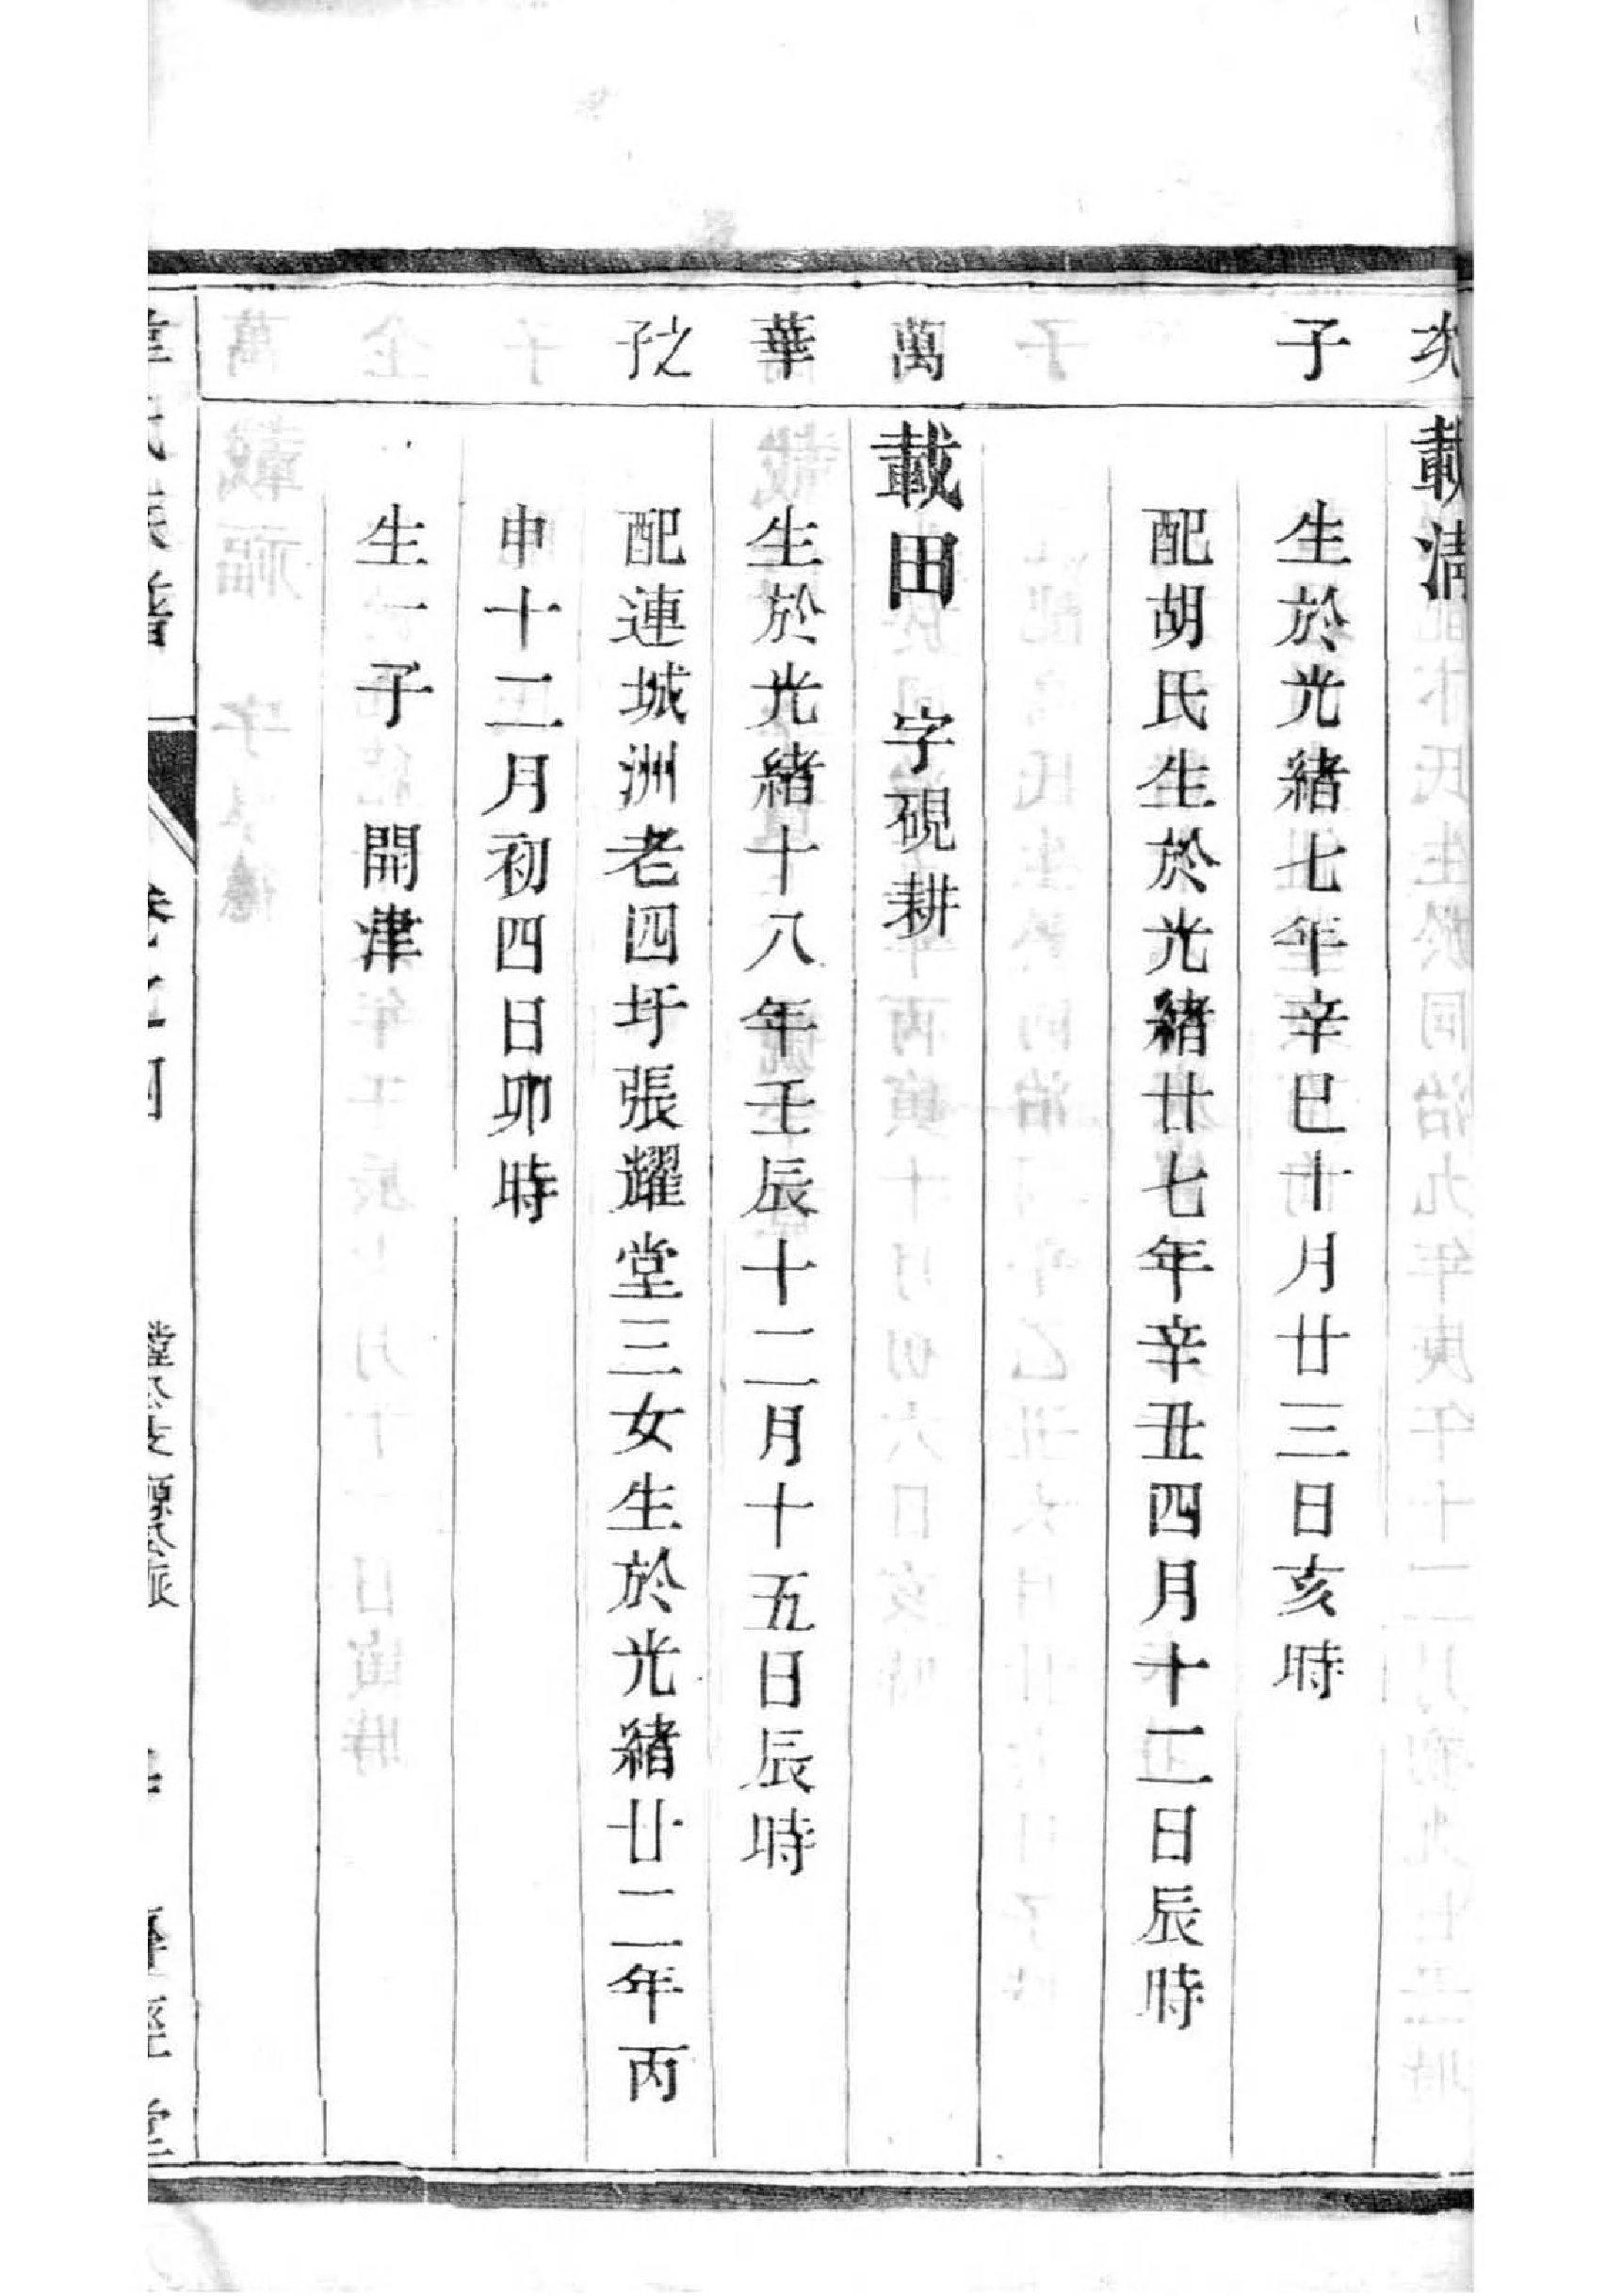 次 載清
子 生於光緒七年辛巳十月廿三日亥時
配胡氏生於光緒廿七年辛丑四月十二日辰時
萬 載田 字硯耕
華 生於光緒十八年壬辰十二月十五日辰時
之子 配連城洲老四圩張耀堂三女生於光緒廿二年丙
申十二月初四日卯時
生一子 開津
卷之四